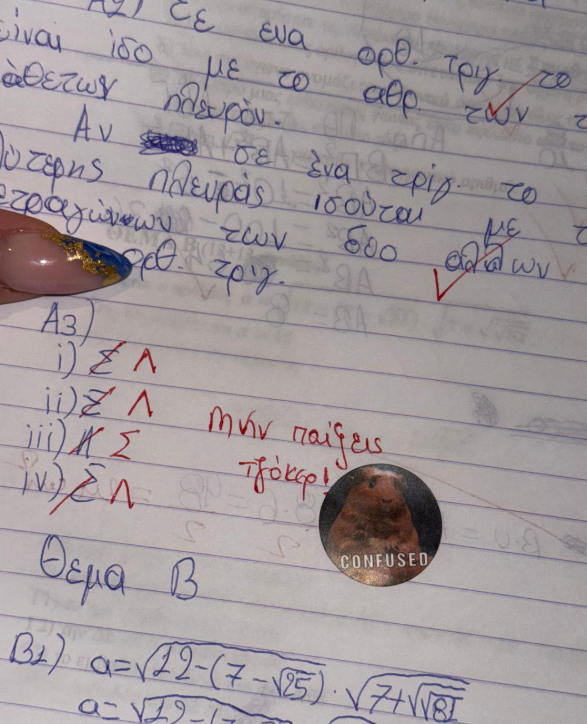 Α2) Σε ενα ορθ. τριγ το
είναι ίσο με το αθρ. των
κάθετων πλευρόν.
Αν σε ένα τρίγ. το
πλευράς ισούται με τ
τετραγώνων των δύο αλλων
ορθ. τριγ.
Α3)
i) Σ Λ
ii) Σ Λ
iii) Λ Σ
iv) Σ Λ
Μην παίξεις
τζόκερ!
CONFUSED
Θεμα Β
Β1) α=√12-(7-√25) · √7+√√81